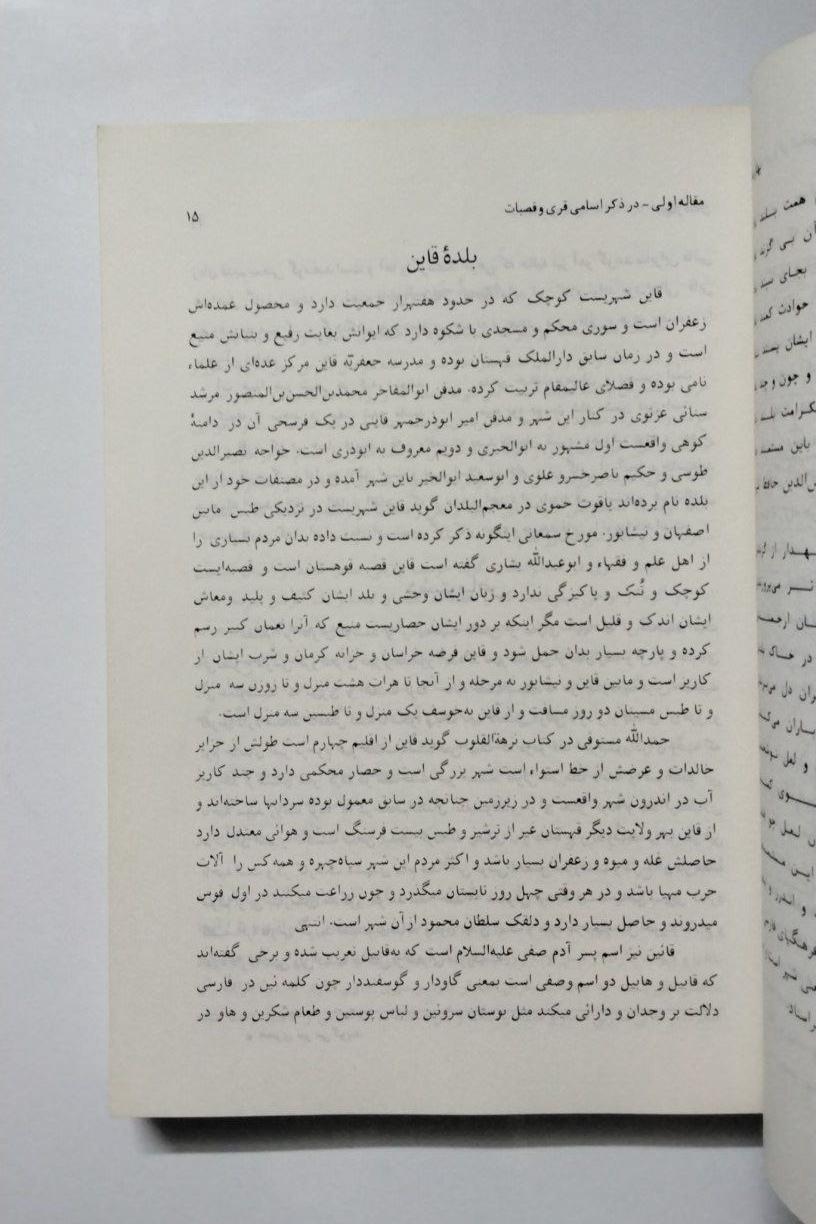 مقاله اولی – در ذکر اسامی قری و قصبات
۱۵
بلدهٔ قاین
قاین شهریست کوچک که در حدود هفتهزار جمعیت دارد و محصول عمده‌اش
زعفران است و سوری محکم و مسجدی با شکوه دارد که ایوانش بغایت رفیع و بنیانش منیع
است و در زمان سابق دارالملک قهستان بوده و مدرسه جعفریّه قاین مرکز عده‌ای از علماء
نامی بوده و فضلای عالیمقام تربیت کرده. مدفن ابوالمفاخر محمدبن‌الحسن‌بن‌المنصور مرشد
سنائی غزنوی در کنار این شهر و مدفن امیر ابوذرجمهر قاینی در یک فرسخی آن در دامنهٔ
کوهی واقعست اول مشهور به ابوالخیری و دویم معروف به ابوذری است. خواجه نصیرالدین
طوسی و حکیم ناصرخسرو علوی و ابوسعید ابوالخیر باین شهر آمده و در مصنفات خود از این
بلده نام برده‌اند یاقوت حموی در معجم‌البلدان گوید قاین شهریست در نزدیکی طبس مابین
اصفهان و نیشابور. مورخ سمعانی اینگونه ذکر کرده است و نسبت داده بدان مردم بسیاری را
از اهل علم و فقهاء و ابوعبدالله بشاری گفته است قاین قصبه قوهستان است و قصبه‌ایست
کوچک و تُنک و پاکیزگی ندارد و زبان ایشان وحشی و بلد ایشان کثیف و پلید ومعاش
ایشان اندک و قلیل است مگر اینکه بر دور ایشان حصاریست منیع که آنرا نعمان کبیر رسم
کرده و پارچه بسیار بدان حمل شود و قاین فرضه خراسان و خزانه کرمان و شرب ایشان از
کاریز است و مابین قاین و نیشابور نه مرحله و از آنجا تا هرات هشت منزل و تا زوزن سه منزل
و تا طبس مسینان دو روز مسافت و از قاین به‌خوسف یک منزل و تا طبسین سه منزل است.
حمدالله مستوفی در کتاب نزهة‌القلوب گوید قاین از اقلیم چهارم است طولش از جزایر
خالدات و عرضش از خط استواء است شهر بزرگی است و حصار محکمی دارد و چند کاریز
آب در اندرون شهر واقعست و در زیرزمین چنانچه در سابق معمول بوده سردابها ساخته‌اند و
از قاین بهر ولایت دیگر قهستان غیر از ترشیز و طبس بیست فرسنگ است و هوائی معتدل دارد
حاصلش غله و میوه و زعفران بسیار باشد و اکثر مردم این شهر سیاه‌چهره و همه کس را آلات
حرب مهیا باشد و در هر وقتی چهل روز تابستان میگذرد و چون زراعت میکنند در اول قوس
میدروند و حاصل بسیار دارد و دلفک سلطان محمود از آن شهر است. انتهی
قائین نیز اسم پسر آدم صفی علیه‌السلام است که به‌قابیل تعریب شده و برخی گفته‌اند
که قابیل و هابیل دو اسم وصفی است بمعنی گاودار و گوسفنددار چون کلمه ئین در فارسی
دلالت بر وجدان و دارائی میکند مثل بوستان سروئین و لباس پوستین و طعام شکرین و هاو در